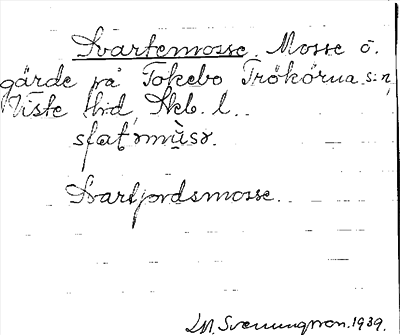 Svartemosse. Mosse o.
gärde på Tokebo Trökörna s:n,
Viste hd, Skb. l.
Svartjordsmosse.
Svenungsson. 1939.